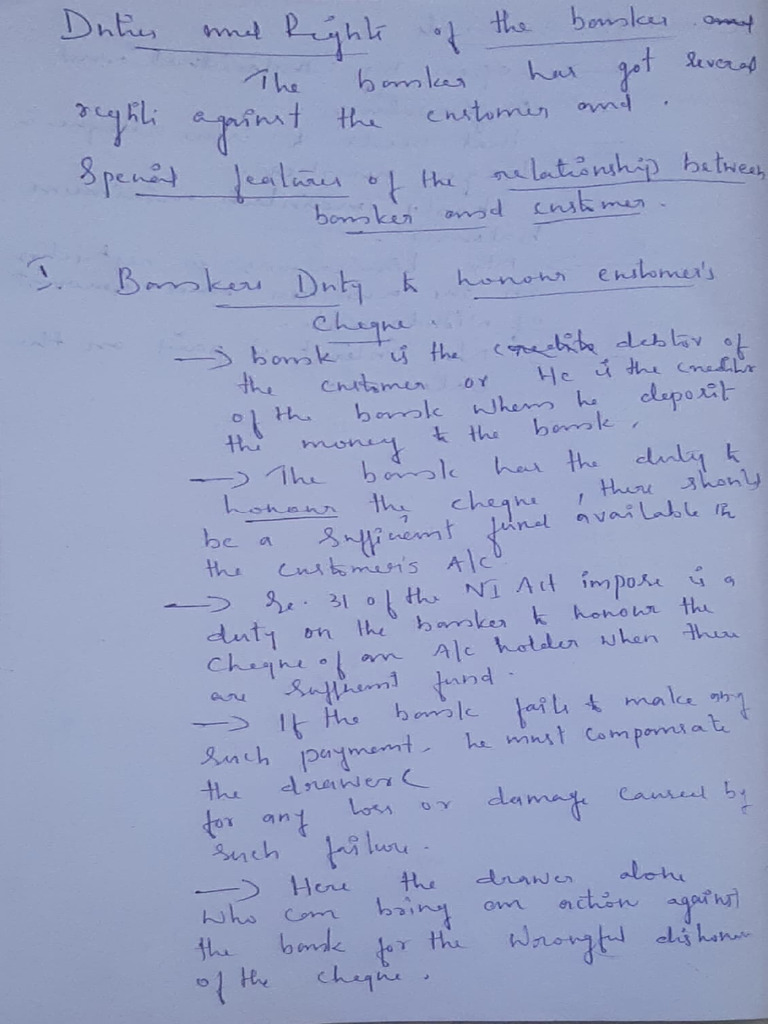 Duties and Rights of the banker and
The banker has got several
rights against the customer and .
Special features of the relationship between
banker and customer.
I. Bankers Duty to honour customer's
cheque.
→ bank is the debtor of
the customer or He is the creditor
of the bank when he deposit
the money to the bank.
→ The bank has the duty to
honour the cheque, there should
be a sufficient fund available in
the customer's A/c
→ Se. 31 of the NI Act impose is a
duty on the banker to honour the
cheque of an A/c holder when there
are sufficient fund.
→ If the bank fails to make any
such payment, he must compensate
the drawer (
for any loss or damage caused by
such failure.
→ Here the drawer alone
who can bring an action against
the bank for the wrongful dishonour
of the cheque.